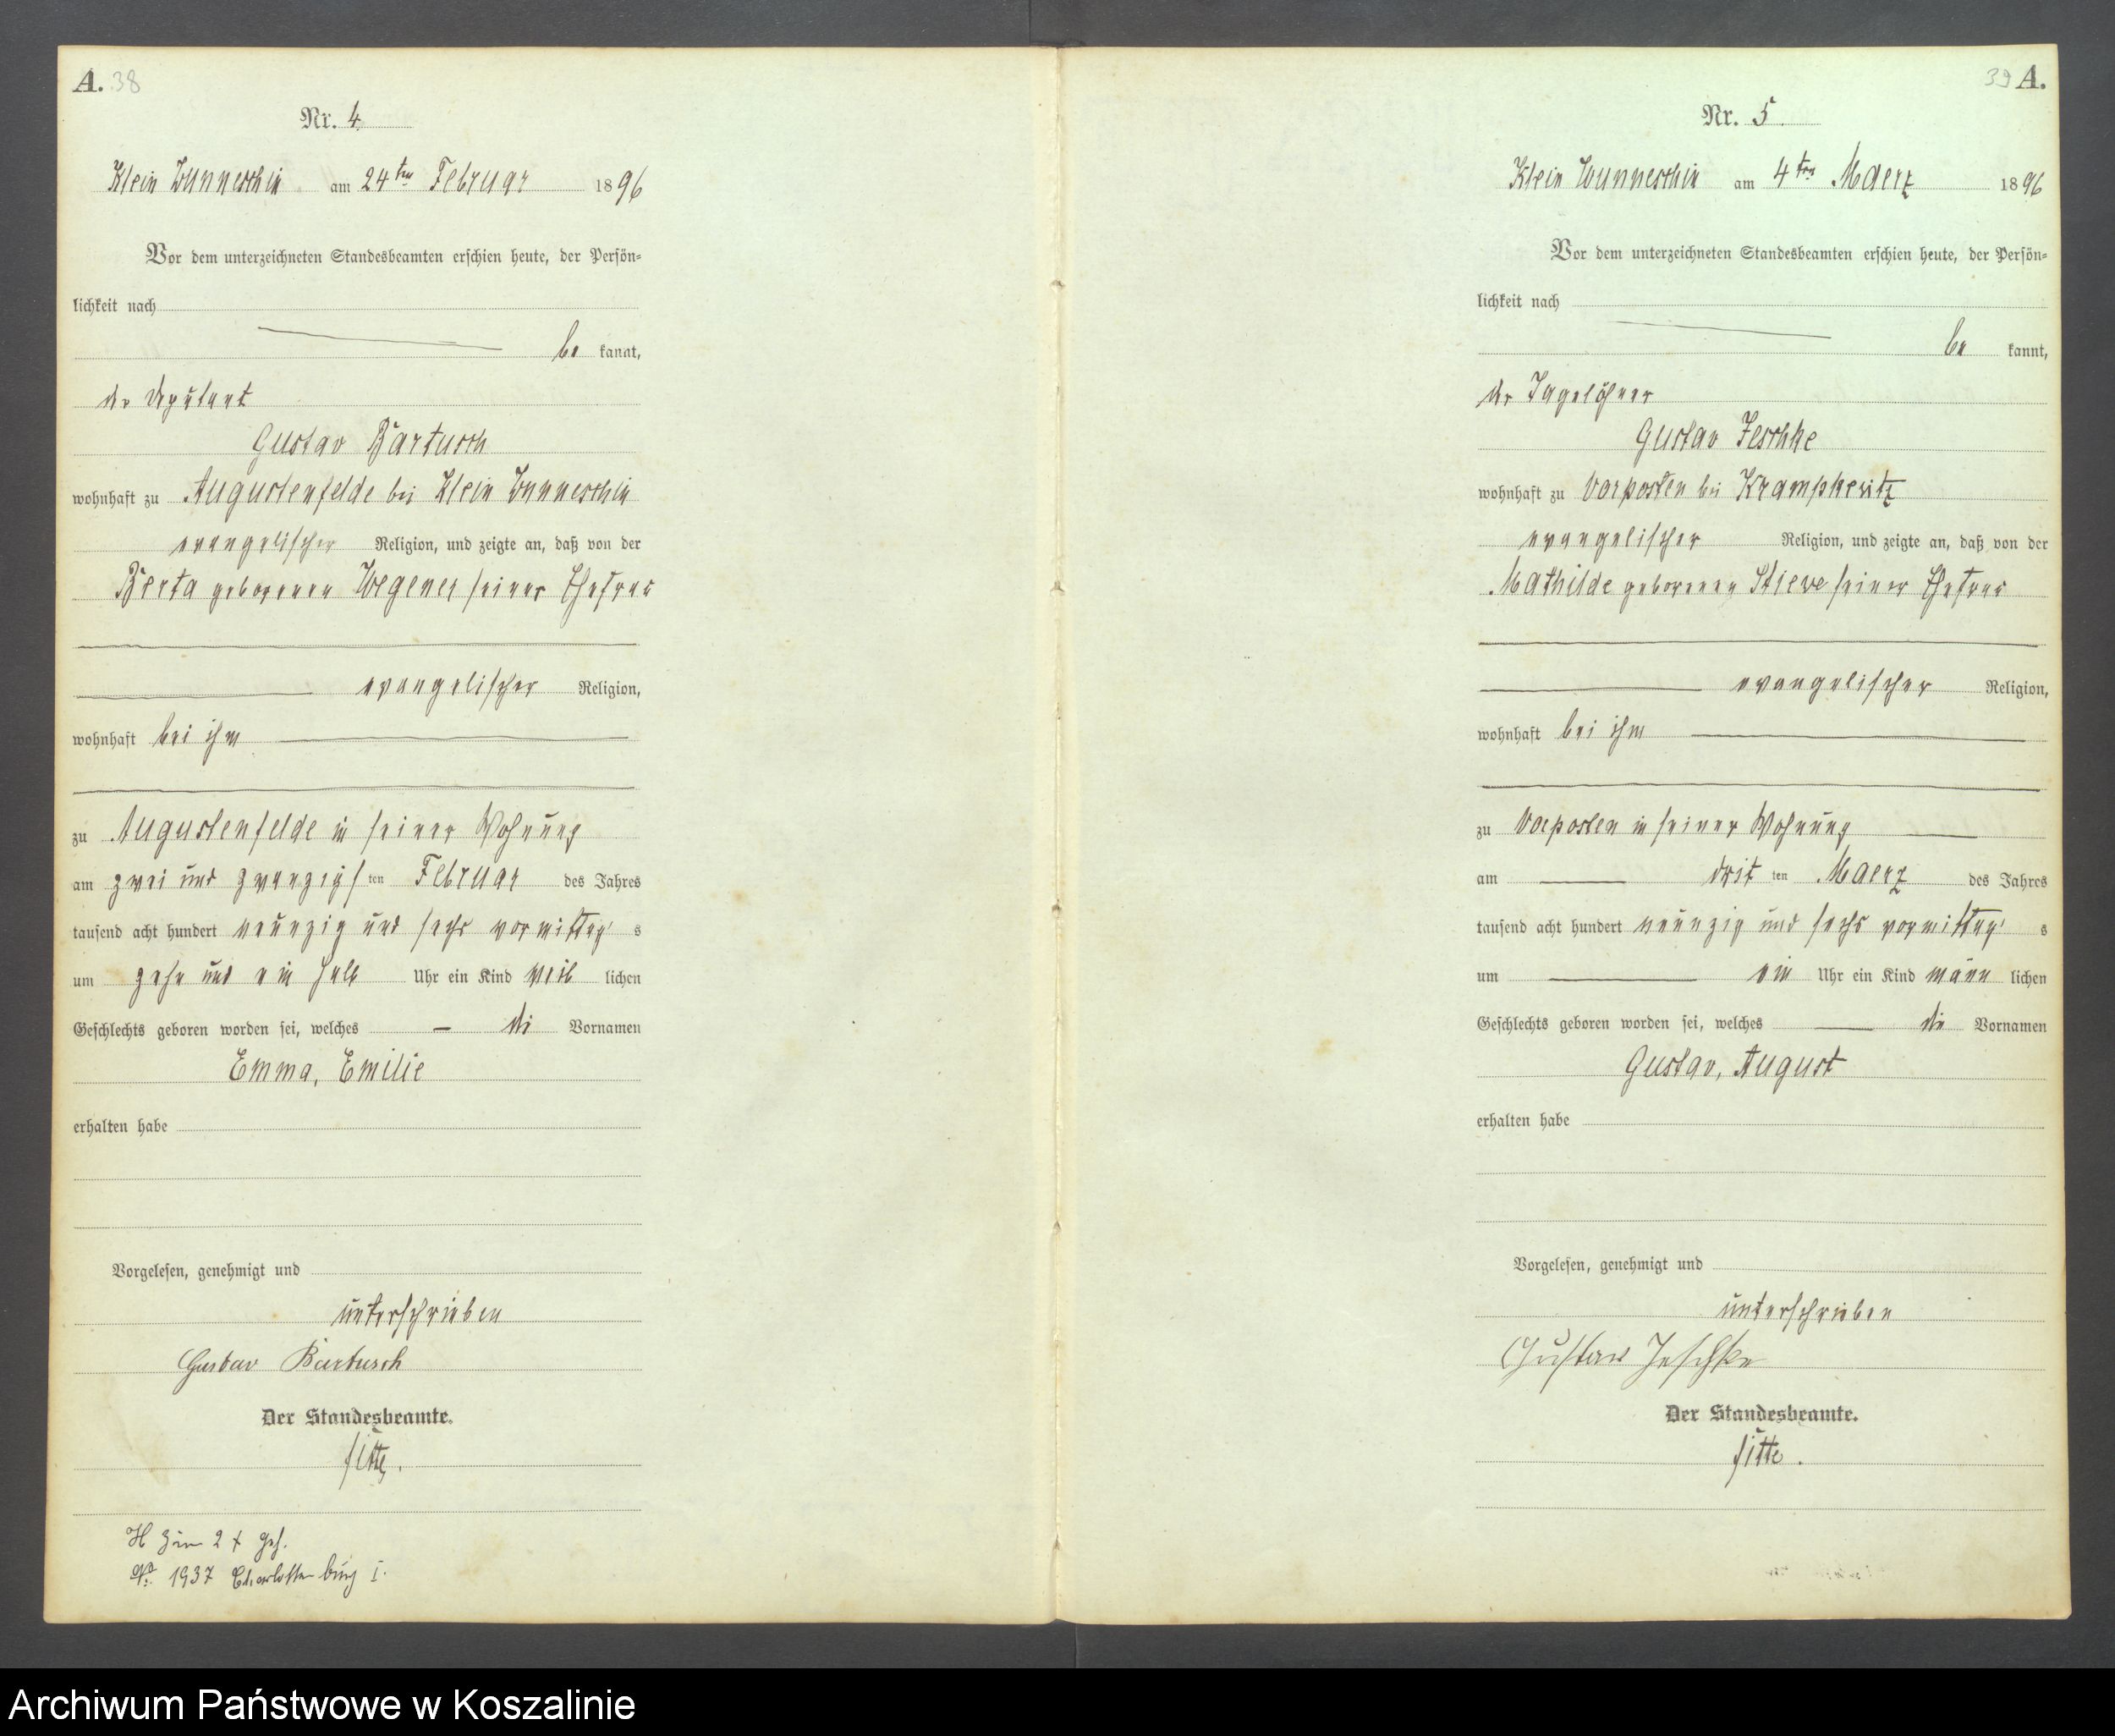 A. 38
Nr. 4.
Klein Wunneschin am 24ten Februar 1896
Vor dem unterzeichneten Standesbeamten erschien heute, der Persön=
lichkeit nach
be kannt,
der Deputant
Gustav Bartusch
wohnhaft zu Augustenfelde bei Klein Wunneschin
evangelischer Religion, und zeigte an, daß von der
Berta geborenen Wegener seiner Ehefrau
evangelischer Religion,
wohnhaft bei ihm
zu Augustenfelde in seiner Wohnung
am zwei und zwanzigsten Februar des Jahres
tausend acht hundert neunzig und sechs vormittags
um zehn und ein halb Uhr ein Kind weiblichen
Geschlechts geboren worden sei, welches — die Vornamen
Emma, Emilie
erhalten habe
Vorgelesen, genehmigt und
unterschrieben
Gustav Bartusch
Der Standesbeamte.
Sitte.
H 2 geh.
1937 Charlottenburg I.
39 A.
Nr. 5.
Klein Wunneschin am 4ten Maerz 1896
Vor dem unterzeichneten Standesbeamten erschien heute, der Persön=
lichkeit nach
be kannt,
der Tagelöhner
Gustav Jeschke
wohnhaft zu Vorposten bei Krampkewitz
evangelischer Religion, und zeigte an, daß von der
Mathilde geborenen Stieve seiner Ehefrau
evangelischer Religion,
wohnhaft bei ihm
zu Vorposten in seiner Wohnung
am dritten Maerz des Jahres
tausend acht hundert neunzig und sechs vormittags
um ein Uhr ein Kind männlichen
Geschlechts geboren worden sei, welches die Vornamen
Gustav, August
erhalten habe
Vorgelesen, genehmigt und
unterschrieben
Gustav Jeschke
Der Standesbeamte.
Sitte.
Archiwum Państwowe w Koszalinie